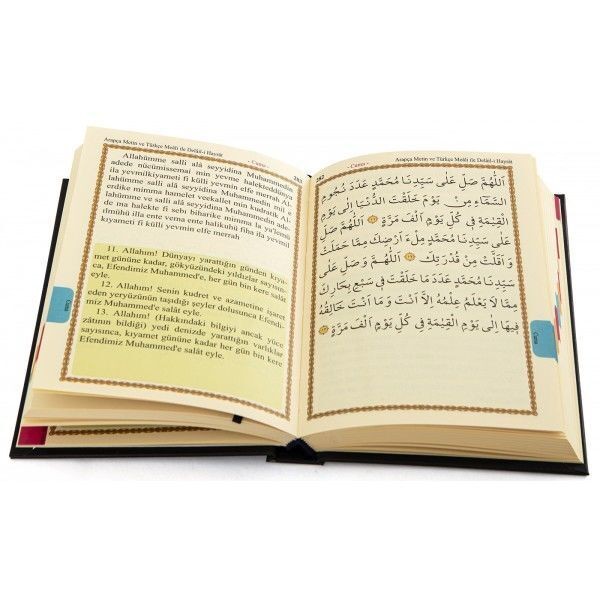 Arapça Metin ve Türkçe Meâli ile Delâil-i Hayrât
- Cuma -
Allahümme salli alâ seyyidina Muhammedin
adede nücümissemai min yevme halekteddünya
ila yevmilkiyameti fi külli yevmin elfe merrah Al-
lahümme salli alâ seyyidina Muhammedin mil e
erdike mimma hamelet veekallet min kudratik Al-
lahümme ve salli alâ seyyidina Muhammedin ade-
de ma halekte fi seb biharike mimma la ya'lemü
ilmühü illa ente vema ente halikuhü fiha ila yevmil
kıyameti fi külli yevmin elfe merrah
11. Allahım! Dünyayı yarattığın günden kıya-
met gününe kadar, gökyüzündeki yıldızlar sayısın-
ca, Efendimiz Muhammed'e, her gün bin kere salât
eyle.
12. Allahım! Senin kudret ve azametine işaret
eden yeryüzünün taşıdığı şeyler dolusunca Efendi-
miz Muhammed'e salât eyle.
13. Allahım! (Hakkındaki bilgiyi ancak yüce
zâtının bildiği) yedi denizde yarattığın varlıklar
sayısınca, kıyamet gününe kadar her gün bin kere
Efendimiz Muhammed'e salât eyle.
Cuma
- Cuma -
Arapça Metin ve Türkçe Meâli ile Delâil-i Hayrât
اَللّٰهُمَّ صَلِّ عَلٰى سَيِّدِنَا مُحَمَّدٍ عَدَدَ نُجُومِ
السَّمَاءِ مِنْ يَوْمَ خَلَقْتَ الدُّنْيَا اِلٰى يَوْمِ
الْقِيٰمَةِ فِى كُلِّ يَوْمٍ اَلْفَ مَرَّةٍ ۝ اَللّٰهُمَّ صَلِّ
عَلٰى سَيِّدِنَا مُحَمَّدٍ مِلْءَ اَرْضِكَ مِمَّا حَمَلَتْ
وَ اَقَلَّتْ مِنْ قُدْرَتِكَ ۝ اَللّٰهُمَّ وَ صَلِّ عَلٰى
سَيِّدِنَا مُحَمَّدٍ عَدَدَ مَا خَلَقْتَ فِى سَبْعِ بِحَارِكَ
مِمَّا لَا يَعْلَمُ عِلْمَهُ اِلَّا اَنْتَ وَ مَا اَنْتَ خَالِقُهُ
فِيهَا اِلٰى يَوْمِ الْقِيٰمَةِ فِى كُلِّ يَوْمٍ اَلْفَ مَرَّةٍ ۝
Cuma